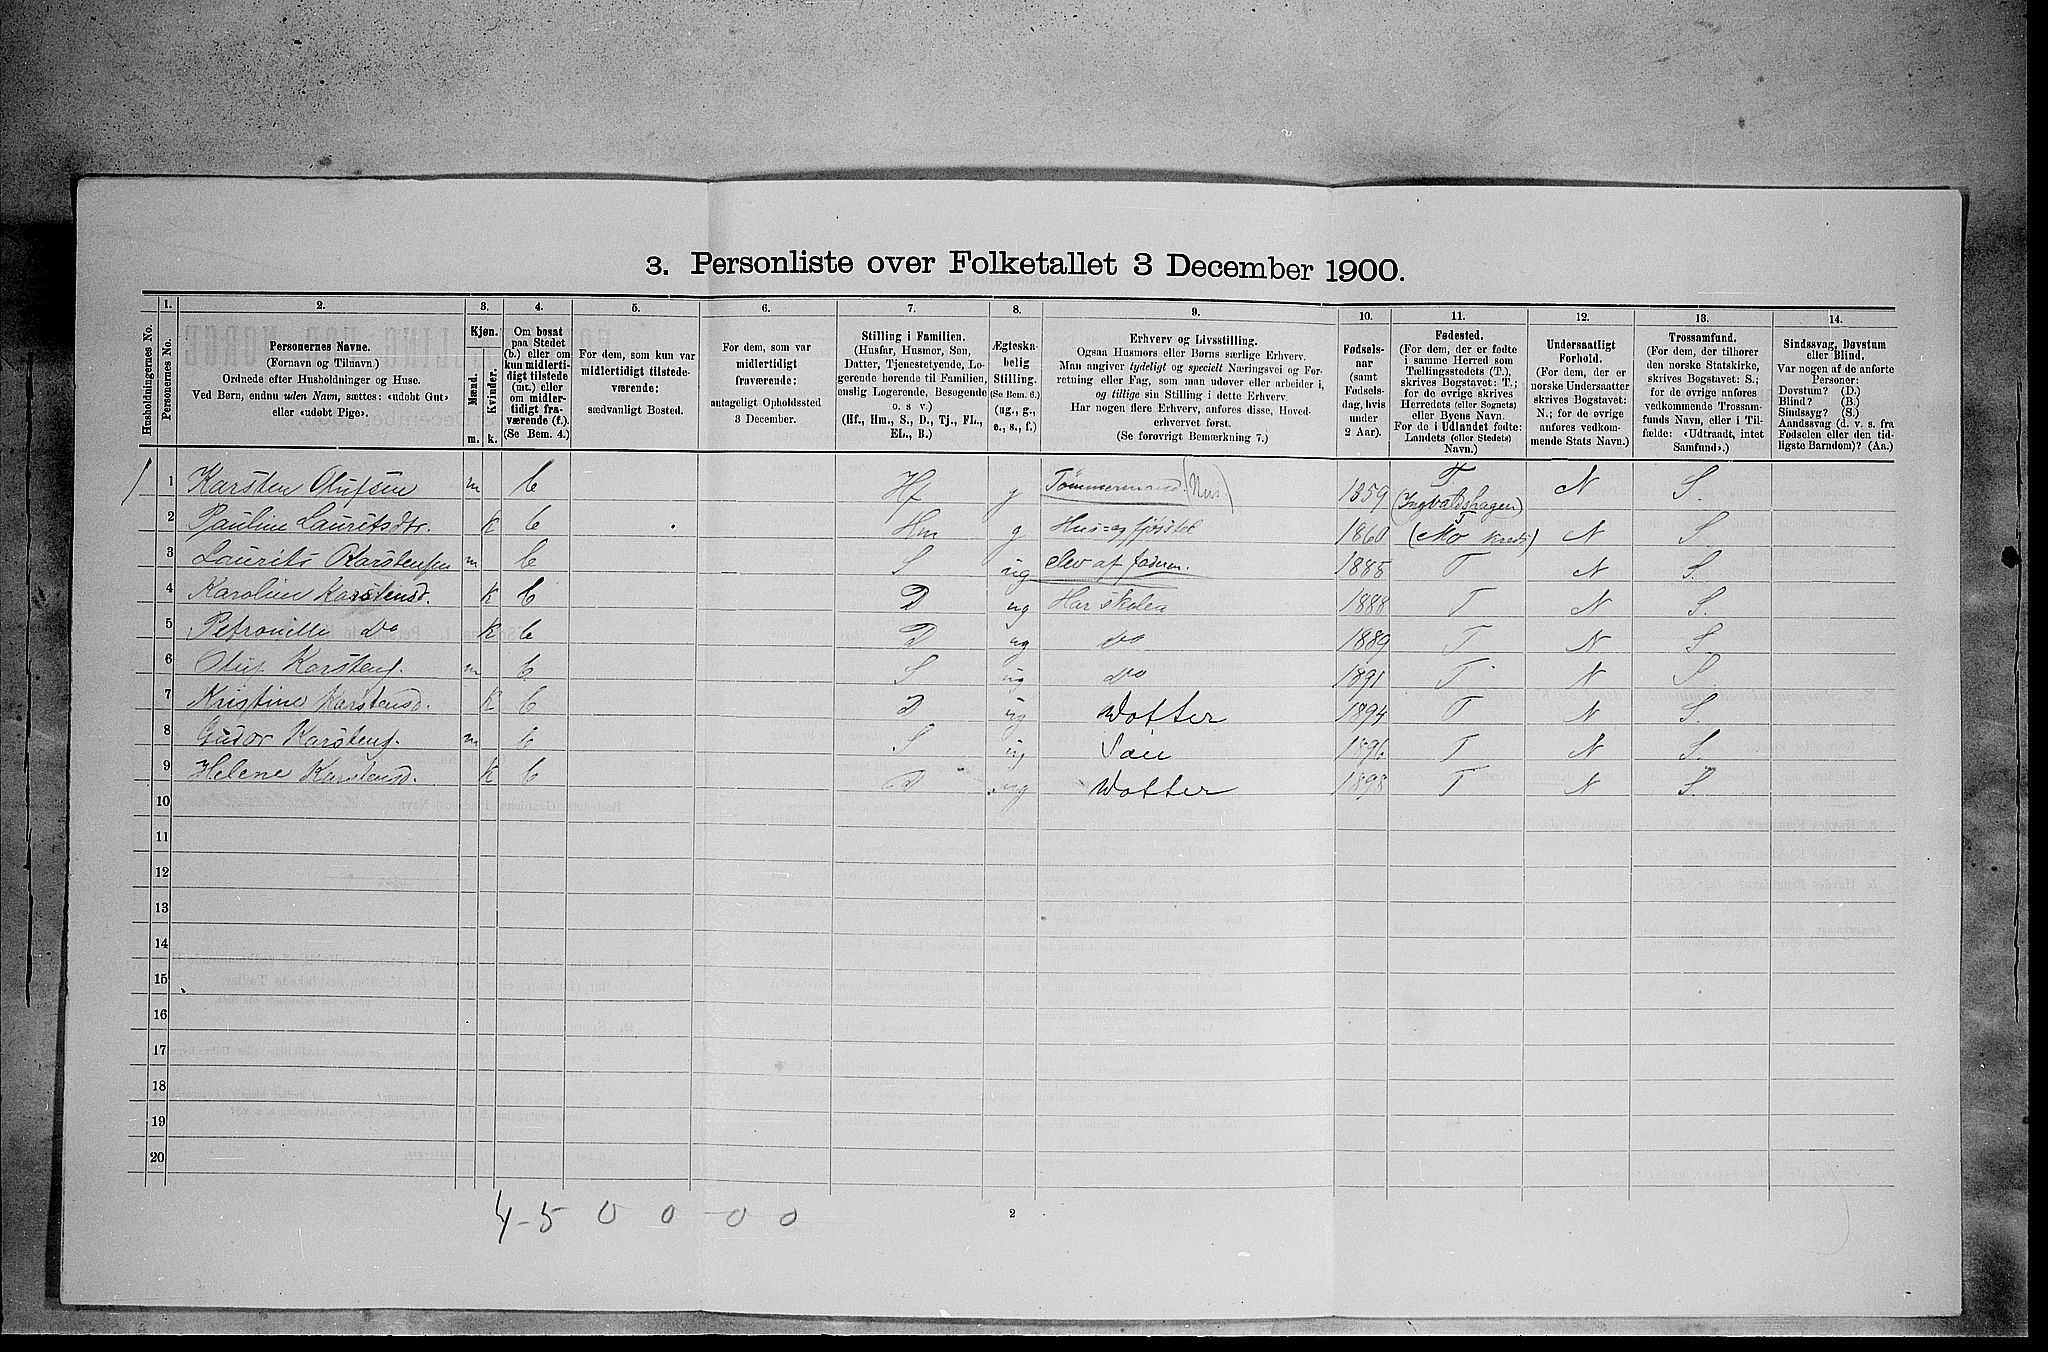 3. Personliste over Folketallet 3 December 1900.
1. 2. 3. 4. 5. 6. 7. 8. 9. 10. 11. 12. 13. 14.
Husholdningernes No.
Personernes No.
Personernes Navne.
(Fornavn og Tilnavn.)
Ordnede efter Husholdninger og Huse.
Ved Børn, endnu uden Navn, sættes: «udøbt Gut»
eller «udøbt Pige».
Kjøn.
Mænd.
Kvinder.
m. k.
Om bosat
paa Stedet
(b.) eller om
kun midlerti-
digt tilstede
(mt.) eller
om midler-
tidigt fra-
værende (f.).
(Se Bem. 4.)
For dem, som kun var
midlertidigt tilstede-
værende:
sædvanligt Bosted.
For dem, som var
midlertidigt
fraværende:
antageligt Opholdssted
3 December.
Stilling i Familien.
(Husfar, Husmor, Søn,
Datter, Tjenestetyende, Lo-
gerende hørende til Familien,
enslig Logerende, Besøgende
o. s. v.)
(Hf., Hm., S., D., Tj., FL.,
EL., B.)
Ægteska-
belig
Stilling.
(Se Bem. 6.)
(ug., g.,
e., s., f.)
Erhverv og Livsstilling.
Ogsaa Husmors eller Børns særlige Erhverv.
Man angiver tydeligt og specielt Næringsvei og For-
retning eller Fag, som man udøver eller arbeider i,
og tillige sin Stilling i dette Erhverv.
Har nogen flere Erhverv, anføres disse, Hoved-
erhvervet først.
(Se forøvrigt Bemærkning 7.)
Fødsels-
aar
(samt
Fødsels-
dag, hvis
under
2 Aar).
Fødested.
(For dem, der er fødte
i samme Herred som
Tællingsstedets (T.),
skrives Bogstavet: T.;
for de øvrige skrives
Herredets (eller Sognets)
eller Byens Navn.
For de i Udlandet fødte:
Landets (eller Stedets)
Navn.)
Undersaatligt
Forhold.
(For dem, der er
norske Undersaatter
skrives Bogstavet:
N.; for de øvrige
anføres vedkom-
mende Stats Navn.)
Trossamfund.
(For dem, der tilhører
den norske Statskirke,
skrives Bogstavet: S.;
for de øvrige anføres
vedkommende Trossam-
funds Navn, eller i Til-
fælde: «Udtraadt, intet
Samfund».)
Sindssvag, Døvstum
eller Blind.
Var nogen af de anførte
Personer:
Døvstum? (D.)
Blind? (B.)
Sindssyg? (S.)
Aandssvag (d. v. s. fra
Fødselen eller den tid-
ligste Barndom)? (Aa.)
1 1 Karsten Olufsen m b Hf g Tømmermand. (Hus.) 1859 T (Ingvaldshagen) N S.
2 Pauline Lauritsdtr. k b Hm g Hus- og fjøsstel 1860 T (Mo kreds) N S.
3 Laurits Karstensen m b S ug Elev af faderen. 1885 T N S.
4 Karoline Karstensd. k b D ug Har skolen 1888 T N S.
5 Petronille Do k b D ug do 1889 T N S.
6 Oluf Karstens. m b S ug do 1891 T N S.
7 Kristine Karstensd. k b D ug Datter 1894 T N S.
8 Karstens. m b S ug Søn 1896 T N S.
9 Helene Karstensd. k b D ug Datter 1898 T N S.
10
11
12
13
14
15
16
17
18
19
20
4-5 0 0 - 0 0
2